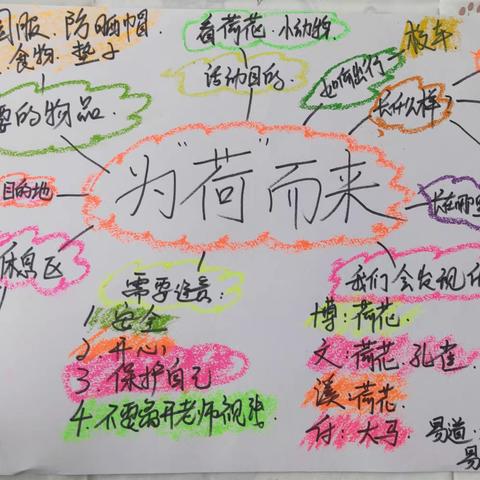 园服、防晒帽
食物、垫子
看荷花、小动物
活动目的
如何出行
校车
长什么样
要的物品
为“荷”而来
目的地
长在哪里
休息区
需要注意:
1 安全
2 开心
3 保护自己
4.不要离开老师视线
我们会发现什
博:荷花
文:荷花、孔雀
溪:荷花
付:大马
易道
易